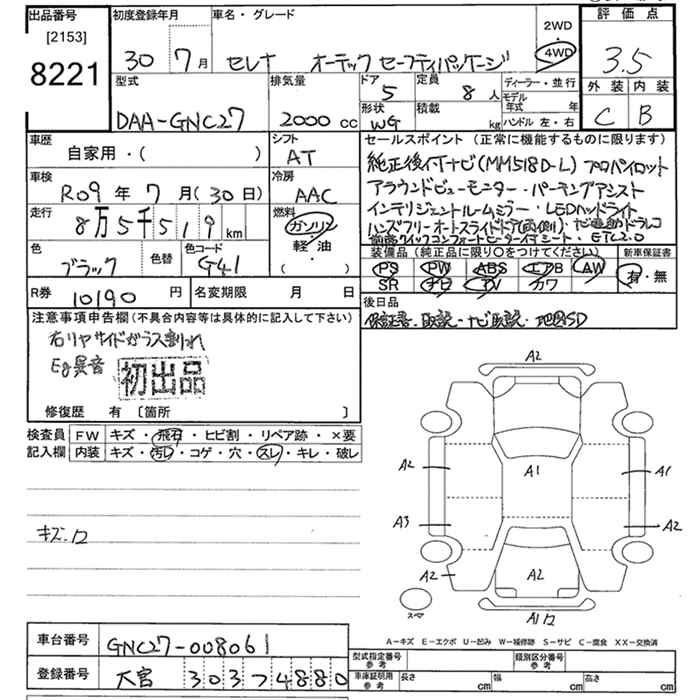 出品番号
[2153]
8221
初度登録年月
30 7 月
車名・グレード
セレナ オーテック セーフティパッケージ
2WD
・
4WD
評価点
3.5
外装 内装
C B
型式
DAA-GNC27
排気量
2000 cc
ドア 5
定員 8 人
形状 WG
積載 kg
ディーラー・並行
モデル年式 年
ハンドル 左・右
車歴
自家用・( )
シフト
AT
車検
R09 年 7 月 (30 日)
冷房
AAC
走行
8万5千519 km
燃料
ガソリン
軽油
・( )
色
ブラック
色替
色コード
G41
R券 10190 円
名変期限 月 日
セールスポイント (正常に機能するものに限ります)
純正後付ナビ(MM518D-L) プロパイロット
アラウンドビューモニター・パーキングアシスト
インテリジェントルームミラー・LEDヘッドライト
ハンズフリーオートスライドドア(両側)・ナビ連動ドラレコ
前席クイックコンフォートヒーター付シート・ETC2.0
装備品 (純正品に限り○をつけてください)
新車保証書
PS PW ABS エアB AW
SR ナビ TV カワ
有・無
後日品
保証書・取説・ナビ取説・地図SD
注意事項申告欄 (不具合内容等は具体的に記入して下さい)
右リヤサイドガラス割れ
Eg異音
初出品
修復歴 有 [箇所 ]
検査員記入欄
FW キズ・飛石・ヒビ割・リペア跡・×要
内装 キズ・汚レ・コゲ・穴・スレ・キレ・破レ
キズ.ワ
A2
A1
A2
A1
A3
A2
A2
A2
A1ワ
スペア
A-キズ E-エクボ U-凹み W-補修跡 S-サビ C-腐食 XX-交換済
車台番号 GNC27-008061
登録番号 大宮 303 7 4880
型式指定番号 参考
類別区分番号 参考
車庫証明用 参考
長さ cm
幅 cm
高さ cm